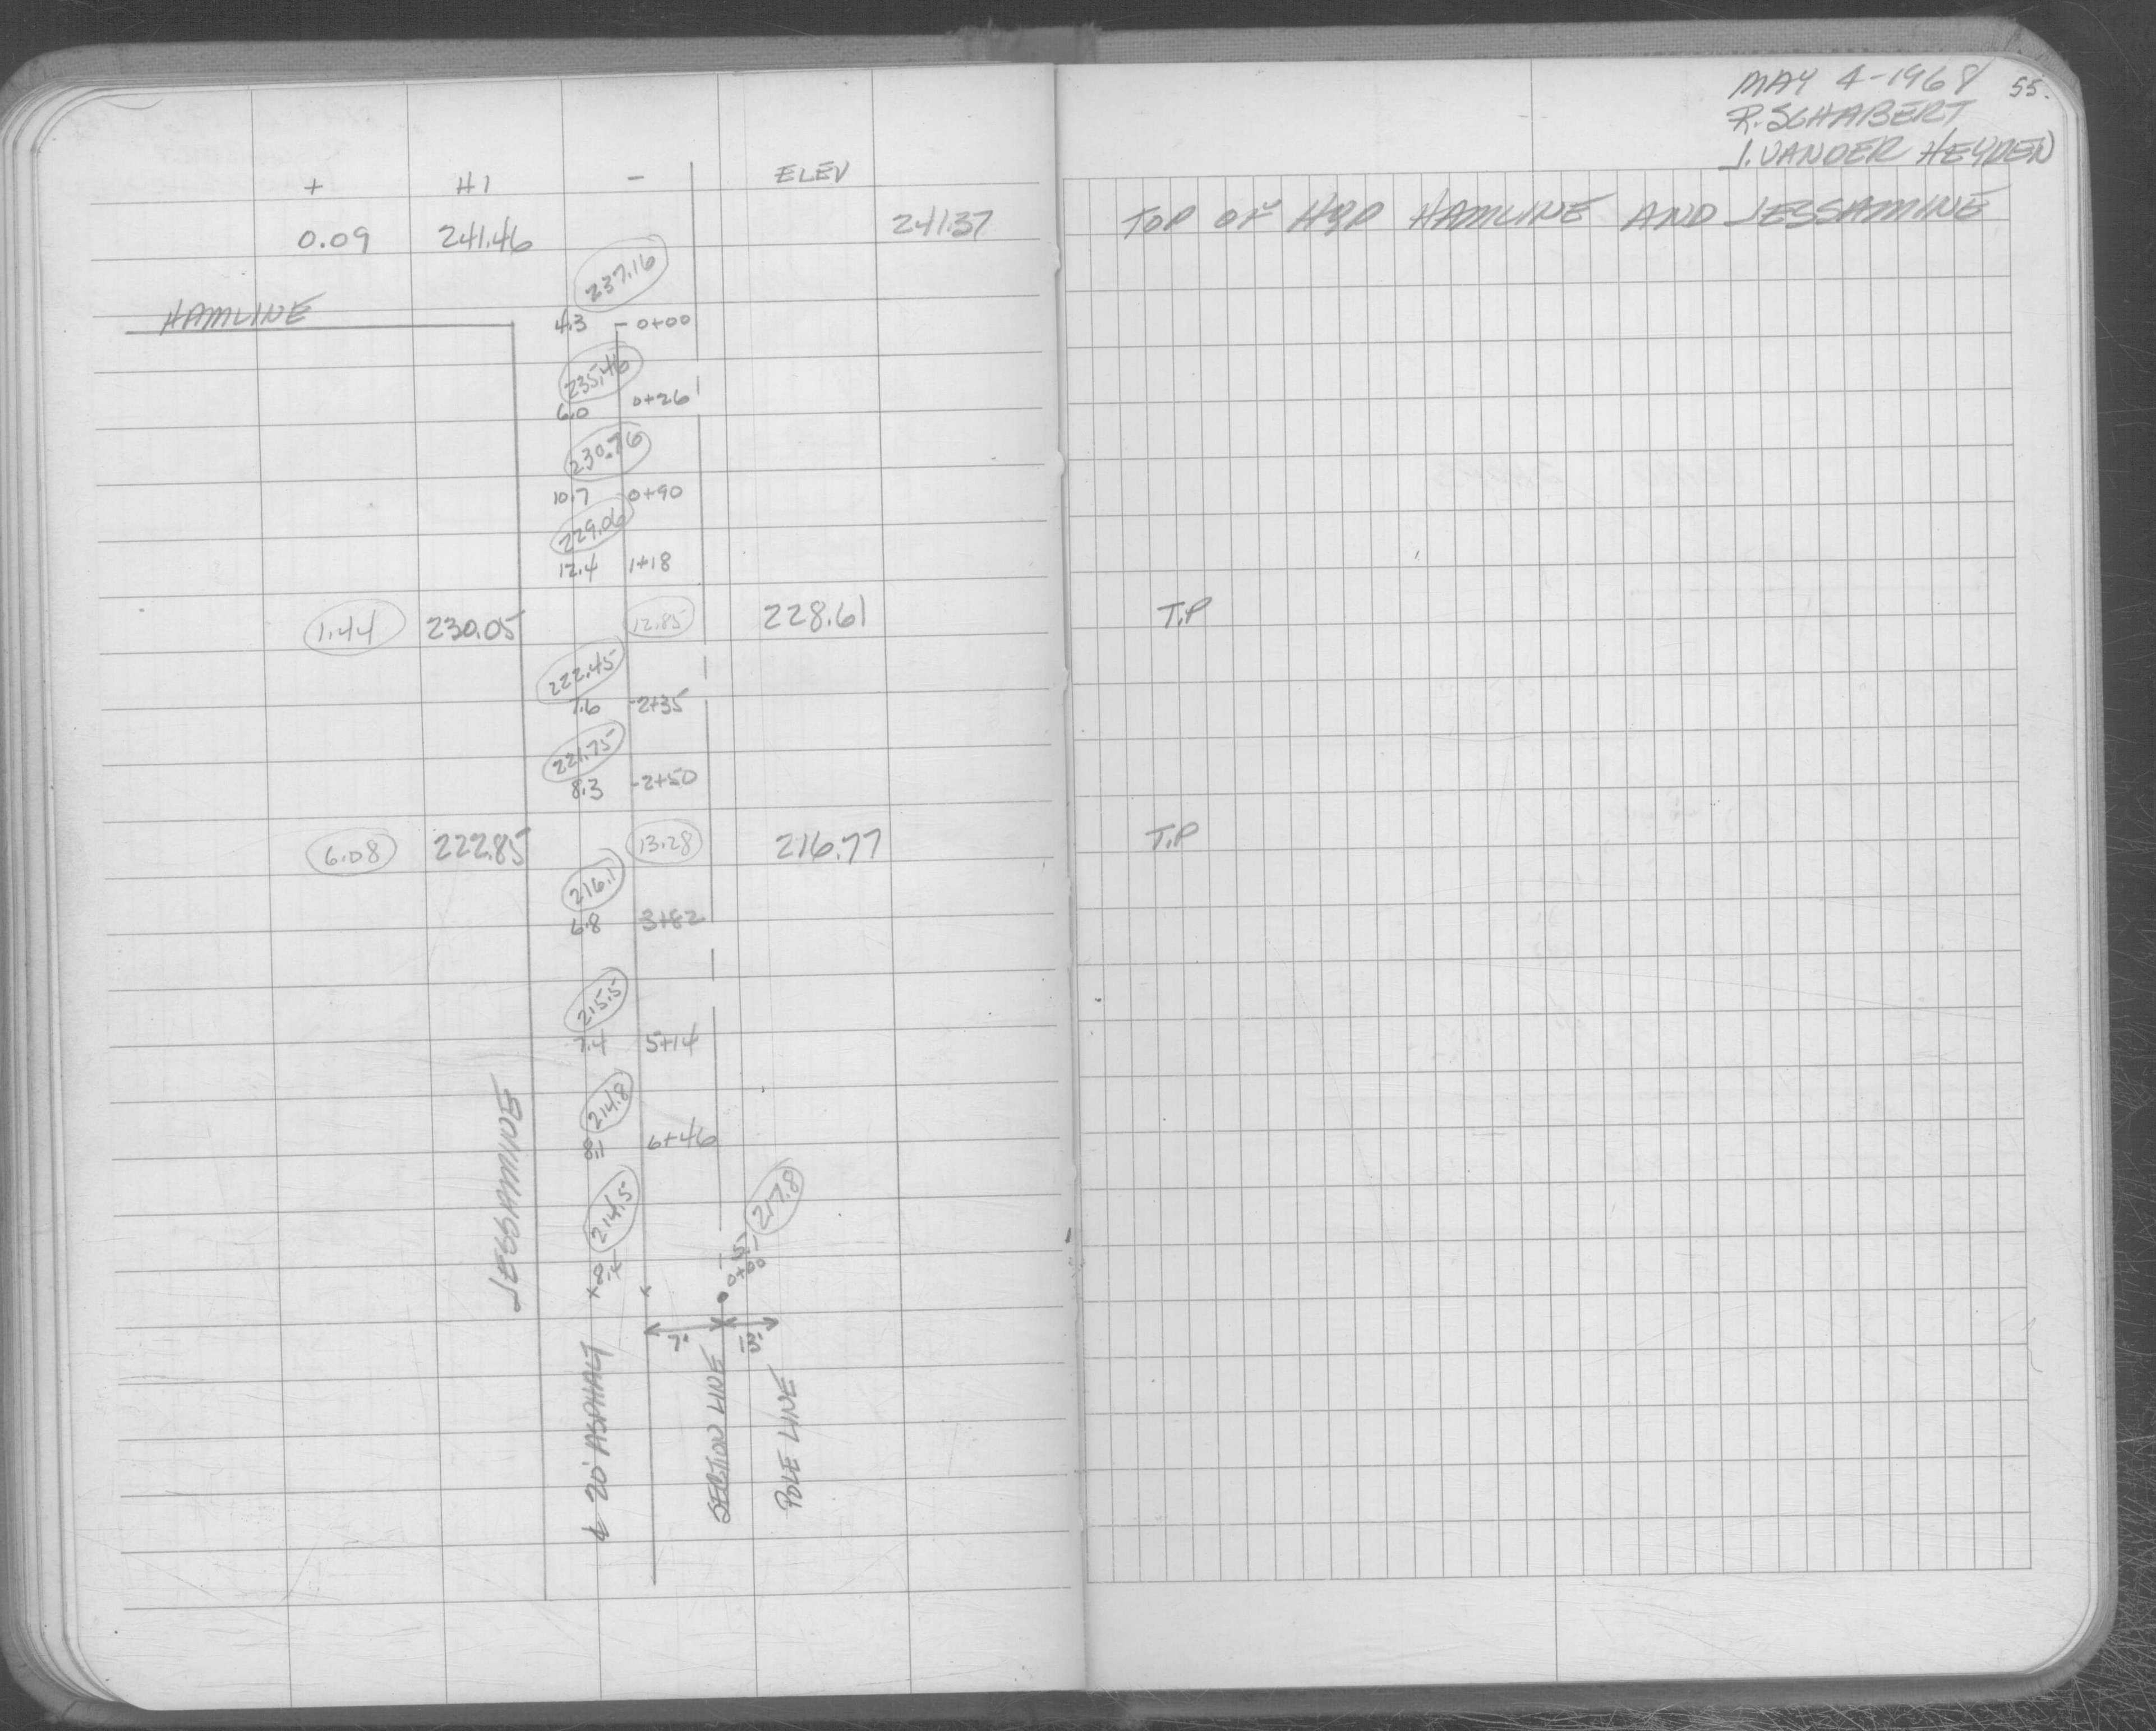 MAY 4-1968 55.
R. SCHABERT
J. VANDER HEYDEN
+ HI - ELEV
0.09 241.46 241.37 TOP OF HYD HAMLINE AND JESSAMINE
237.16
HAMLINE 4.3 - 0+00
235.46
6.0 0+26
230.76
10.7 0+90
229.06
12.4 1+18
1.44 230.05 12.85 228.61 T.P
222.45
7.6 -2+35
221.75
8.3 -2+50
6.08 222.85 13.28 216.77 T.P
216.1
6.8 3+82
215.5
7.4 5+14
214.8
8.1 6+46
JESSAMINE
214.5
x 8.4 x
217.8
5.1
0+00
7'
20' ASPHALT
SECTION LINE
POLE LINE